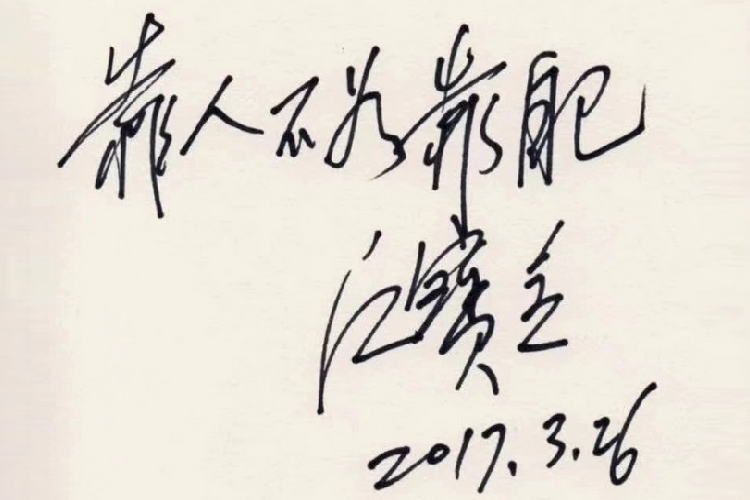 靠人不如靠自己
寶
2017.3.26